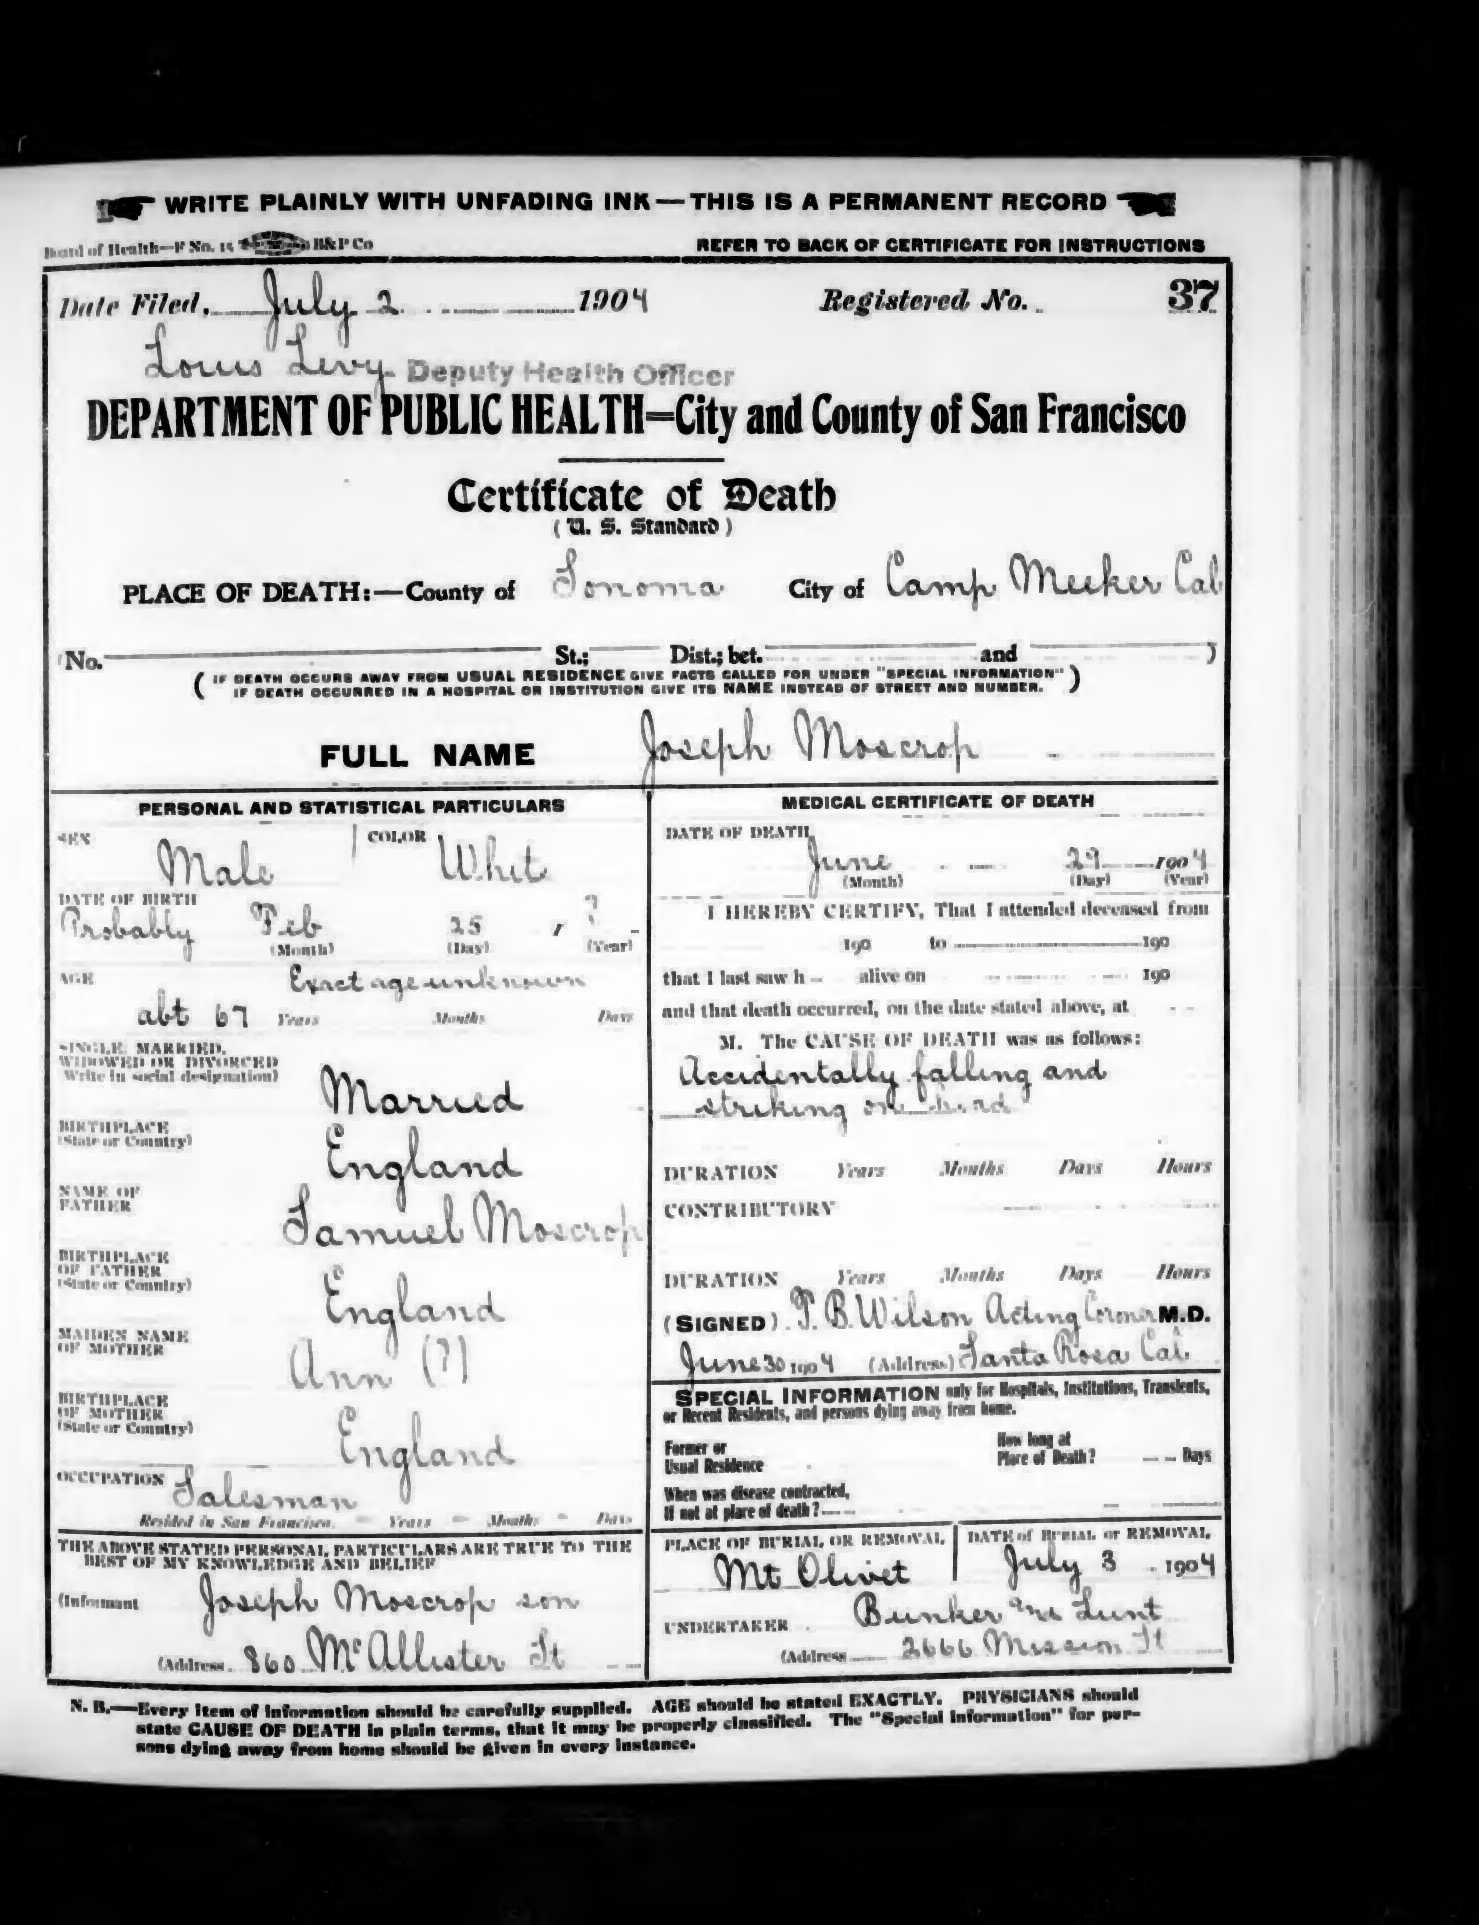 WRITE PLAINLY WITH UNFADING INK—THIS IS A PERMANENT RECORD
Board of Health—F No. 15 B&P Co REFER TO BACK OF CERTIFICATE FOR INSTRUCTIONS
Date Filed, July 2 1904 Registered No. 37
Louis Levy Deputy Health Officer
DEPARTMENT OF PUBLIC HEALTH=City and County of San Francisco
Certificate of Death
(U. S. Standard)
PLACE OF DEATH:—County of Sonoma City of Camp Meeker Cal
(No. St.; Dist.; bet. and )
( IF DEATH OCCURS AWAY FROM USUAL RESIDENCE GIVE FACTS CALLED FOR UNDER "SPECIAL INFORMATION"
IF DEATH OCCURRED IN A HOSPITAL OR INSTITUTION GIVE ITS NAME INSTEAD OF STREET AND NUMBER. )
FULL NAME Joseph Moscrop
PERSONAL AND STATISTICAL PARTICULARS
SEX Male COLOR Whit
DATE OF BIRTH
Probably Feb 25, ?
(Month) (Day) (Year)
AGE Exact age unknown
abt 67 Years Months Days
SINGLE, MARRIED,
WIDOWED OR DIVORCED
(Write in social designation)
Married
BIRTHPLACE
(State or Country)
England
NAME OF
FATHER
Samuel Moscrop
BIRTHPLACE
OF FATHER
(State or Country)
England
MAIDEN NAME
OF MOTHER
Ann (?)
BIRTHPLACE
OF MOTHER
(State or Country)
England
OCCUPATION Salesman
Resided in San Francisco, Years Months Days
THE ABOVE STATED PERSONAL PARTICULARS ARE TRUE TO THE
BEST OF MY KNOWLEDGE AND BELIEF
(Informant Joseph Moscrop son
(Address 860 McAllister St
MEDICAL CERTIFICATE OF DEATH
DATE OF DEATH
June 29 1904
(Month) (Day) (Year)
I HEREBY CERTIFY, That I attended deceased from
190 to 190
that I last saw h alive on 190
and that death occurred, on the date stated above, at
M. The CAUSE OF DEATH was as follows:
Accidentally falling and
striking on head
DURATION Years Months Days Hours
CONTRIBUTORY
DURATION Years Months Days Hours
(SIGNED) F. B. Wilson Acting Coroner M.D.
June 30 1904 (Address) Santa Rosa Cal
SPECIAL INFORMATION only for Hospitals, Institutions, Transients,
or Recent Residents, and persons dying away from home.
Former or
Usual Residence
How long at
Place of Death? Days
When was disease contracted,
If not at place of death?
PLACE OF BURIAL OR REMOVAL
Mt Olivet
DATE of BURIAL or REMOVAL
July 3 1904
UNDERTAKER Bunker and Lunt
(Address 2666 Mission St
N. B.—Every item of information should be carefully supplied. AGE should be stated EXACTLY. PHYSICIANS should
state CAUSE OF DEATH in plain terms, that it may be properly classified. The "Special Information" for per-
sons dying away from home should be given in every instance.